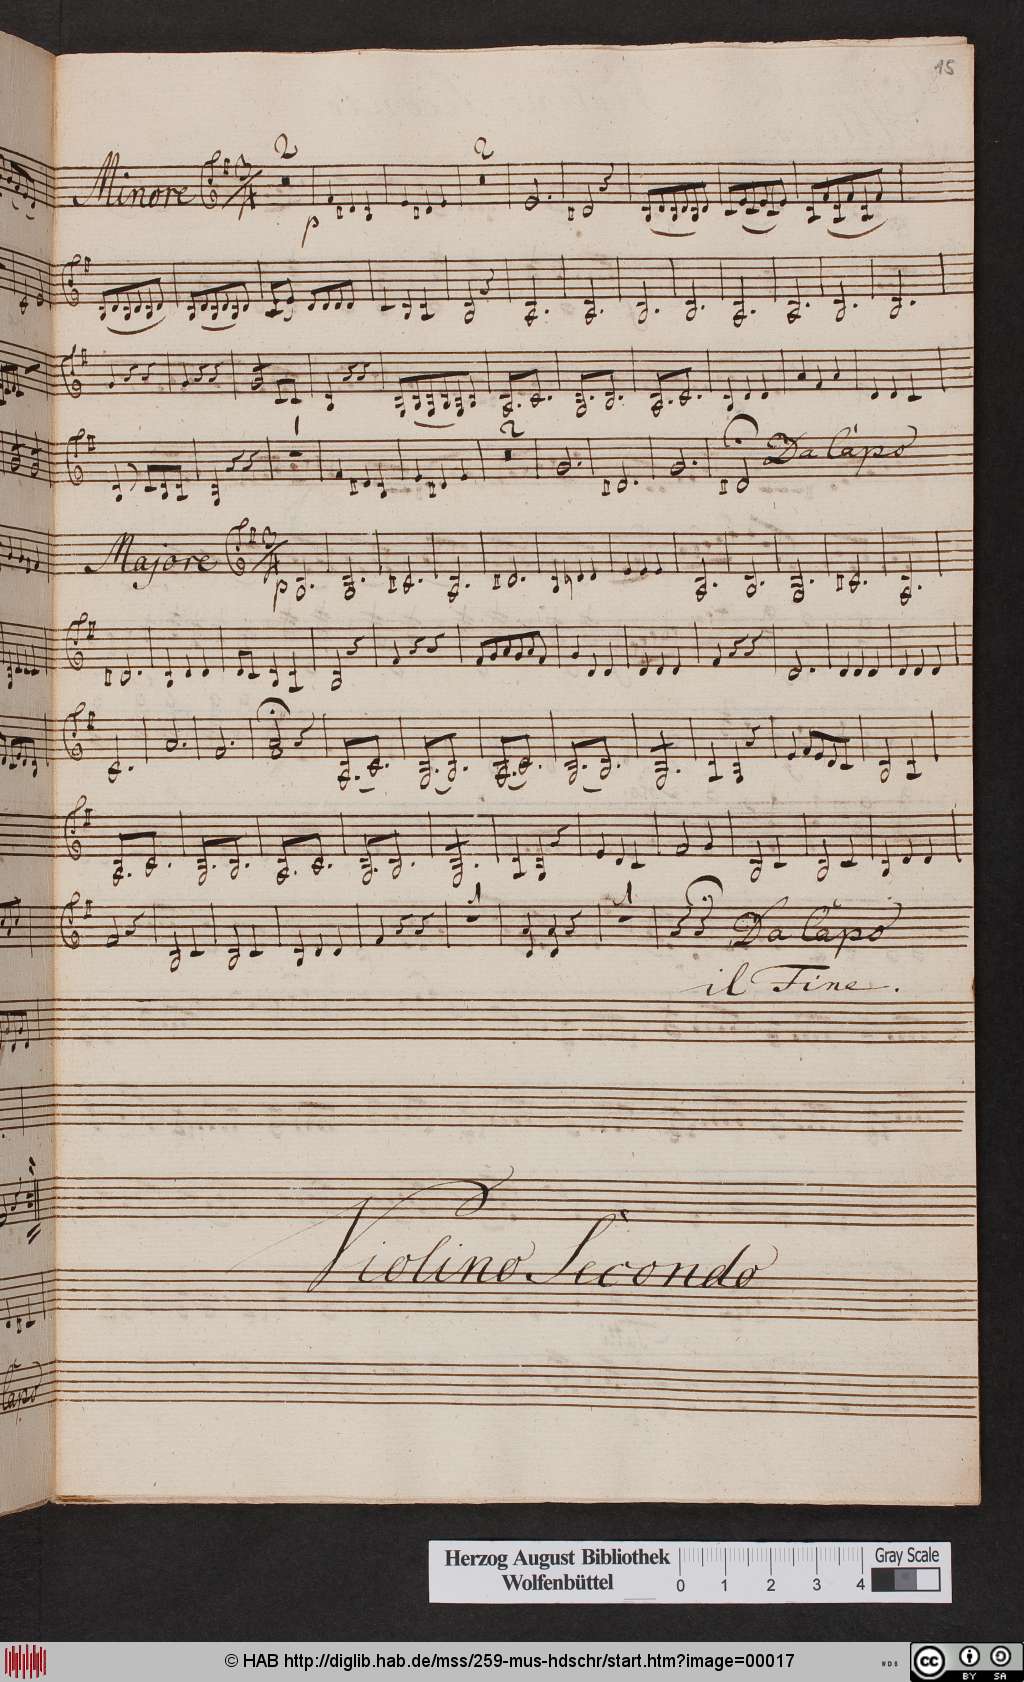 15
Minore 3/4 2 2
p
1 2 Da Capo
Majore 3/4
p
1 1 Da Capo
il Fine.
Violino Secondo
Capo
Herzog August Bibliothek
Wolfenbüttel
Gray Scale
0 1 2 3 4
© HAB http://diglib.hab.de/mss/259-mus-hdschr/start.htm?image=00017
WDB
cc BY SA